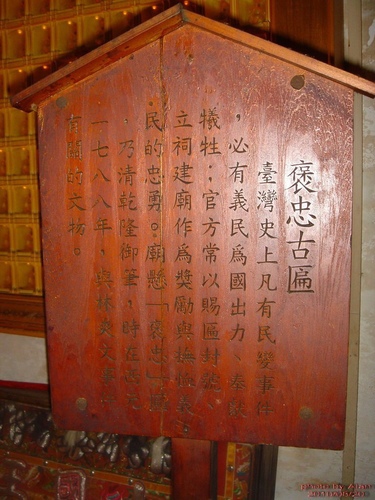 褒忠古匾
臺灣史上凡有民變事件
，必有義民為國出力、奉獻
犧牲，官方常以賜匾封號、
立祠建廟作為獎勵與撫恤義
民的忠勇。廟懸「褒忠」匾
，乃清乾隆御筆，時在西元
一七八八年，與林爽文事
有關的文物。